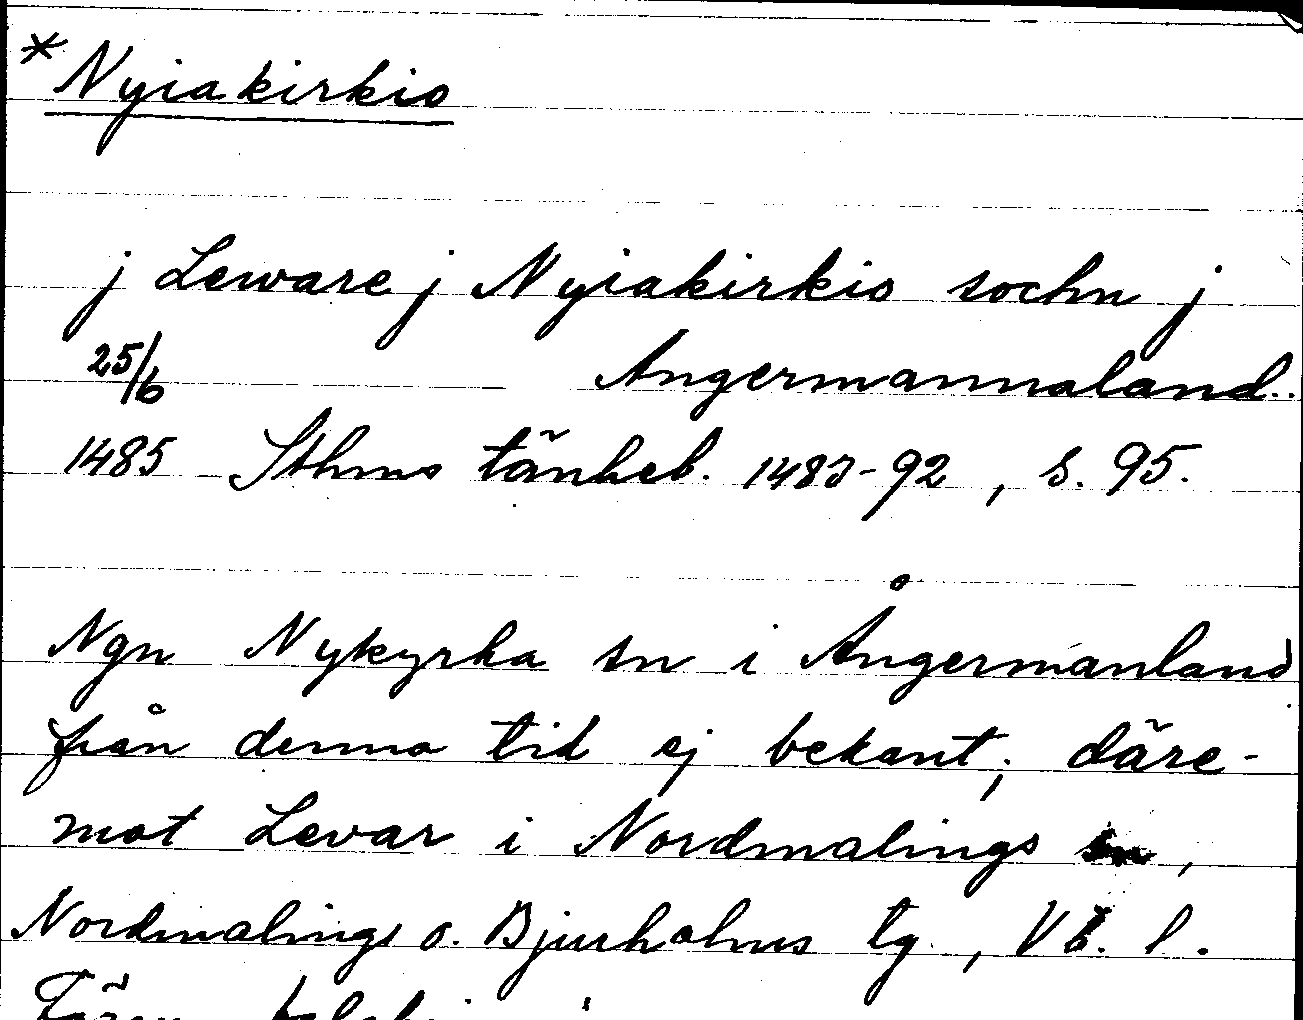 * Nyiakirkio
j Leware j Nyiakirkio sochn j
25/6 Angermannaland..
1485 Sthms tänkeb. 1483-92, s. 95.
Ngn Nykyrka sn i Ångermanland
från denna tid ej bekant; däre-
mot Levar i Nordmalings sn,
Nordmalings o. Bjurholms tg., Vb. l.